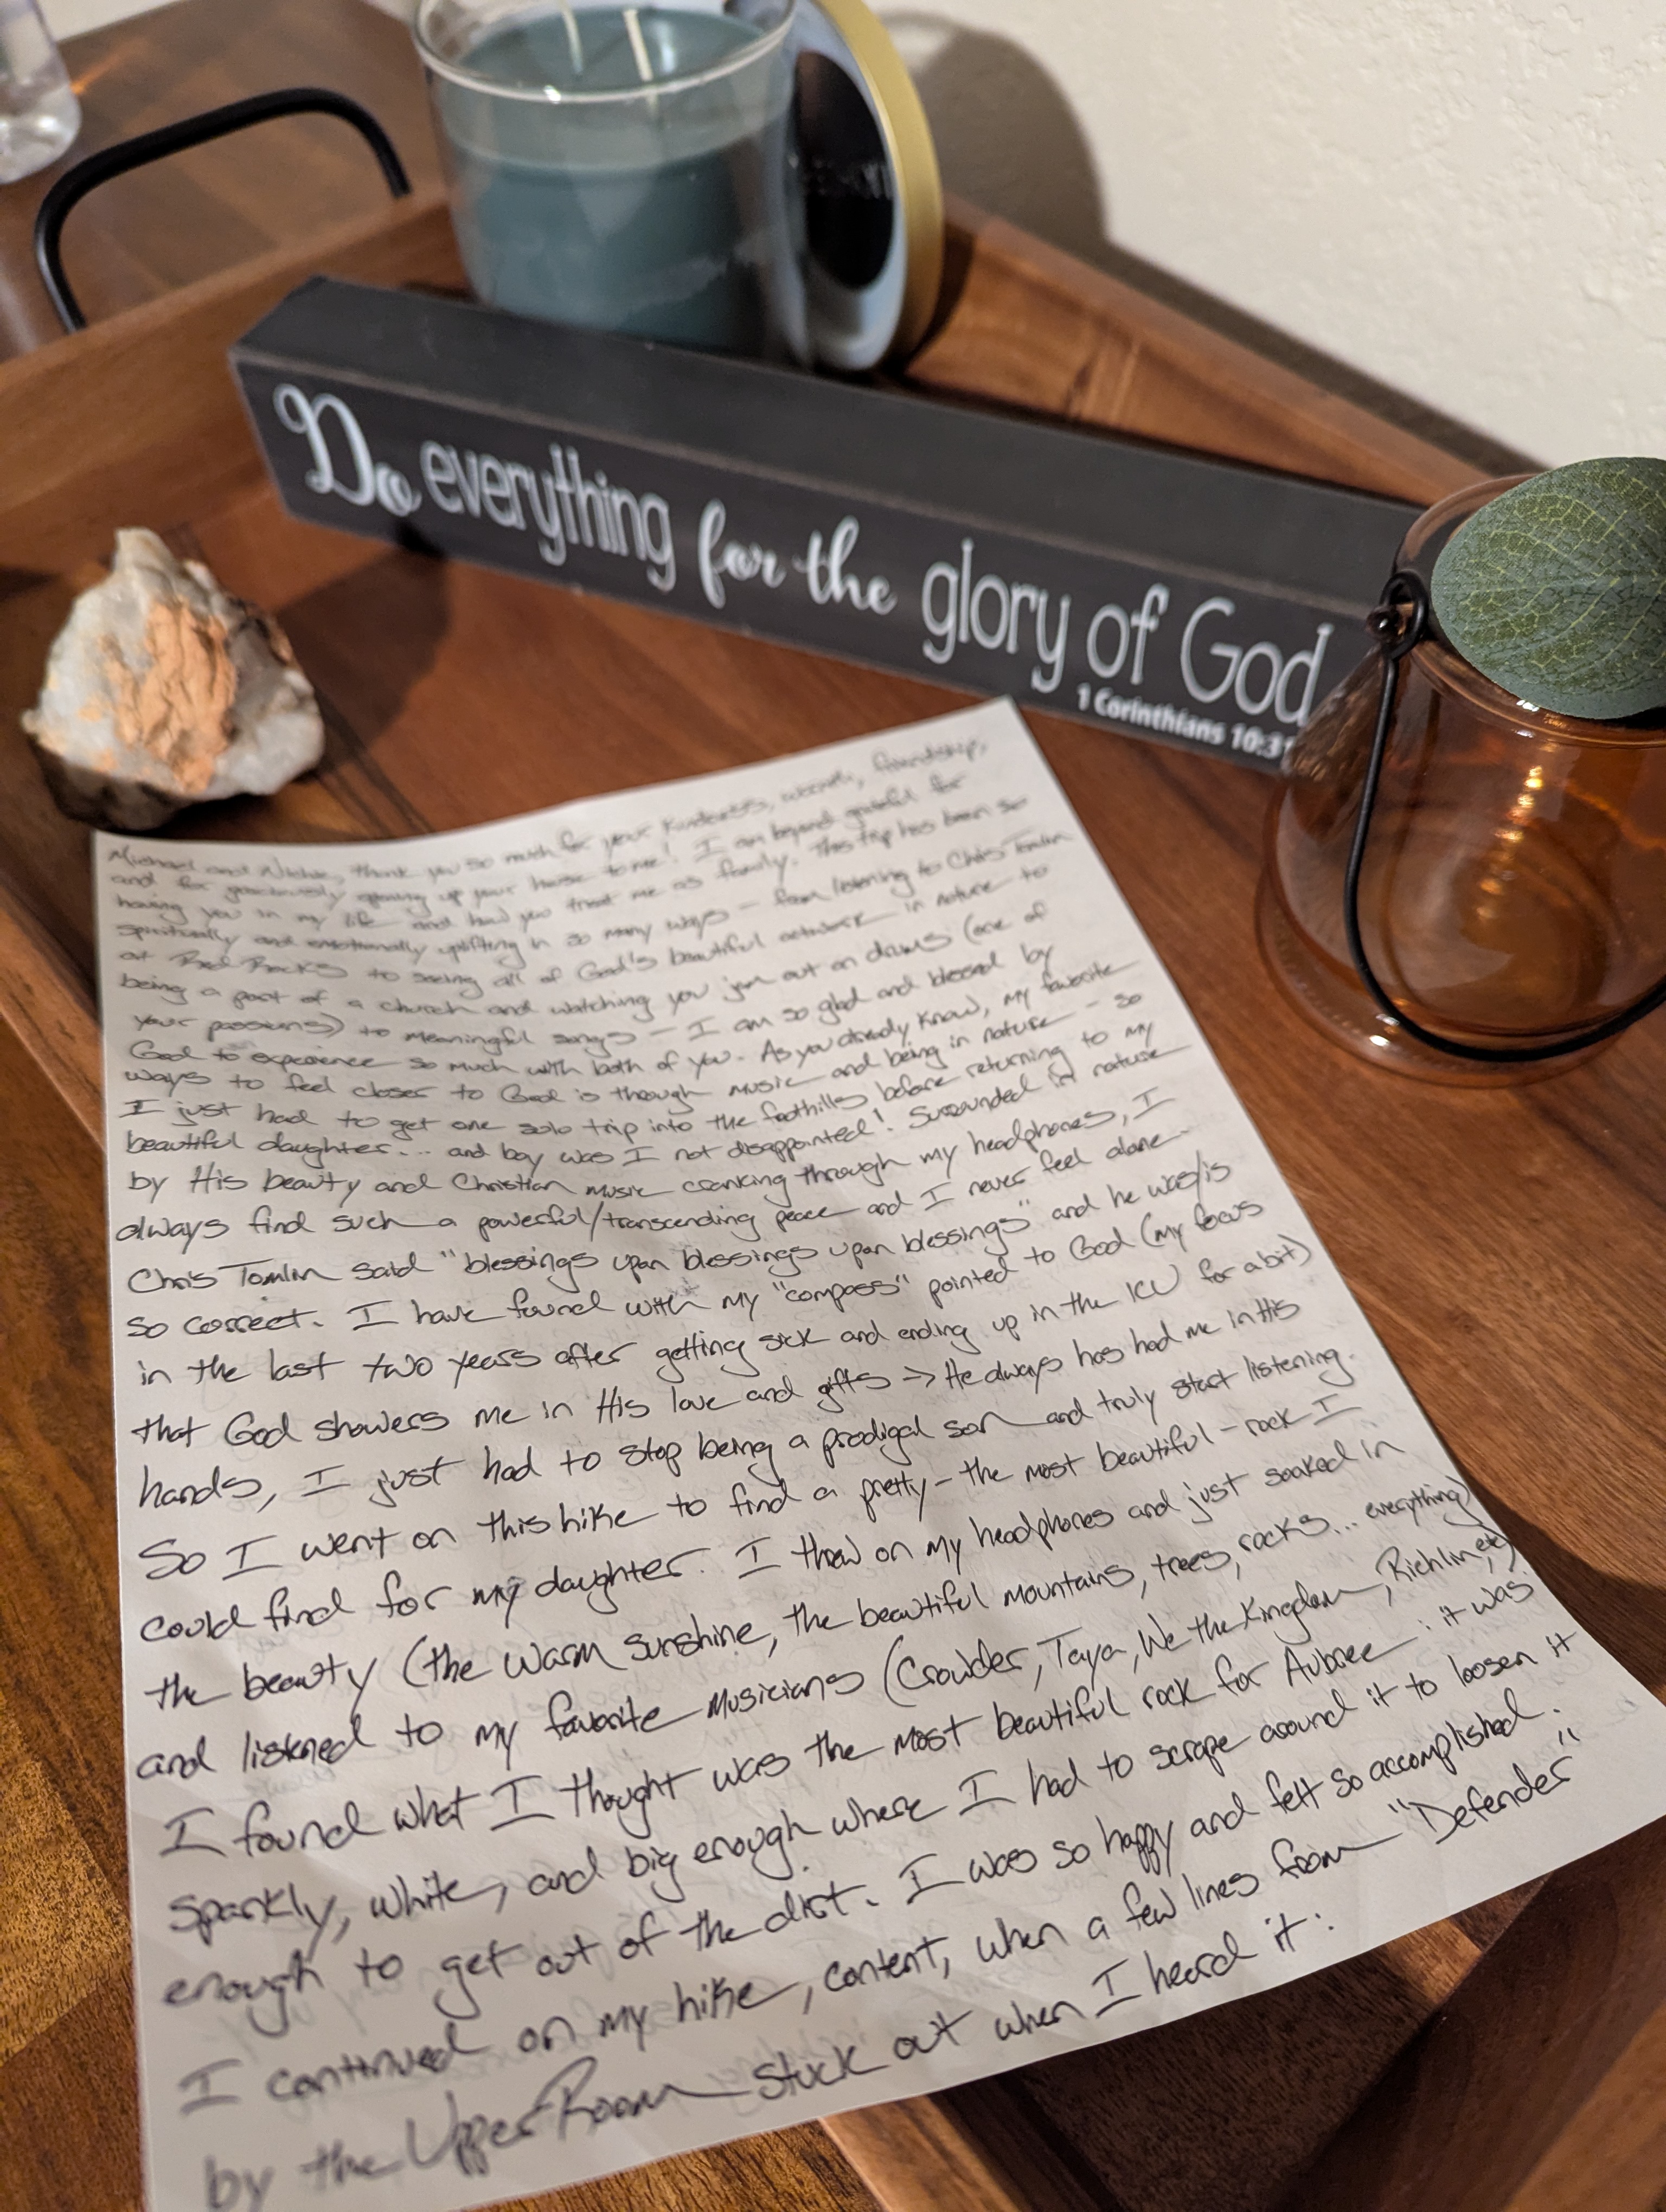 Do everything for the glory of God
1 Corinthians 10:31
Michael and thank you so much for your kindness, friendship,
and for graciously opening up your house to me! I am beyond grateful for
having you in my life and how you treat me as family. This trip has been so
spiritually and emotionally uplifting in so many ways - from listening to Chris Tomlin
at Red Rocks to seeing all of God's beautiful artwork in nature to
being a part of a church and watching you jam out on drums (one of
your passions) to meaningful songs - I am so glad and blessed by
God to experience so much with both of you. As you already know, my favorite
ways to feel closer to God is through music and being in nature - so
I just had to get one solo trip into the foothills before returning to my
beautiful daughter... and boy was I not disappointed! Surrounded in nature
by His beauty and Christian music cranking through my headphones, I
always find such a powerful/transcending peace and I never feel alone.
Chris Tomlin said "blessings upon blessings upon blessings" and he was/is
so correct. I have found with my "compass" pointed to God (my focus
in the last two years after getting sick and ending up in the ICU for a bit)
that God showers me in His love and gifts → He always has had me in His
hands, I just had to stop being a prodigal son and truly start listening.
So I went on this hike to find a pretty - the most beautiful - rock I
could find for my daughter. I threw on my headphones and just soaked in
the beauty (the warm sunshine, the beautiful mountains, trees, rocks... everything)
and listened to my favorite musicians (Crowder, Taya, We the Kingdom, Richlin, etc)
I found what I thought was the most beautiful rock for Aubree: it was
sparkly, white, and big enough where I had to scrape around it to loosen it
enough to get out of the dirt. I was so happy and felt so accomplished.
I continued on my hike, content, when a few lines from "Defender"
by the UpperRoom stuck out when I heard it: